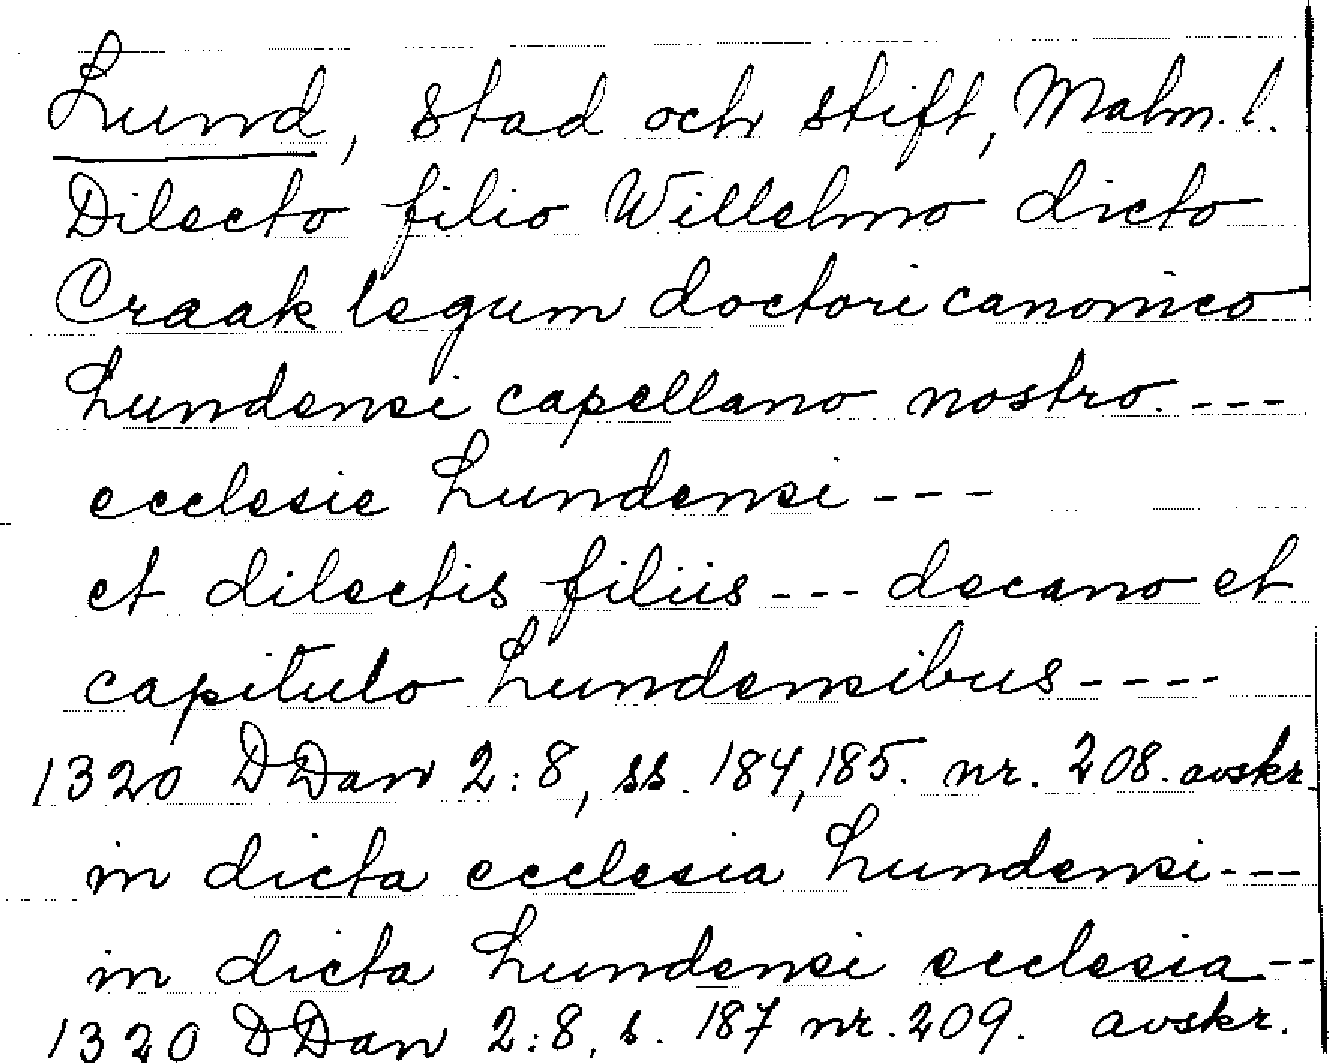 Lund, stad och stift, Malm. l.
Dilecto filio Willelmo dicto
Craak legum doctori canonico
Lundensi capellano nostro. ---
ecclesie Lundensi ---
et dilectis filiis --- decano et
capitulo Lundensibus ----
1320 DDan 2:8, ss. 184,185. nr. 208. avskr.
in dicta ecclesia Lundensi ---
in dicta Lundensi ecclesia --
1320 DDan 2:8, s. 187 nr. 209. avskr.